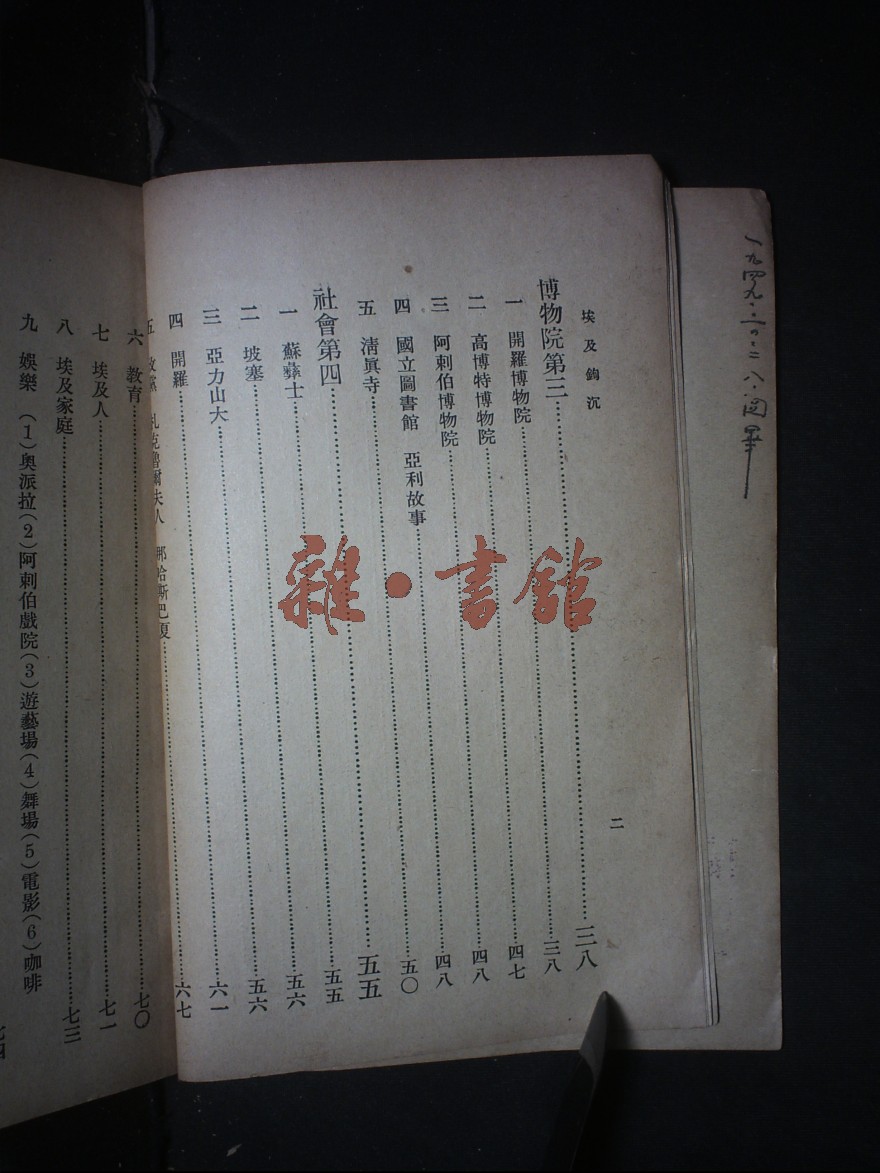 一九四九·一〇·二八·閱畢
埃及鈎沉
二
博物院第三……三八
一 開羅博物院……三八
二 高博特博物院……四七
三 阿剌伯博物院……四八
四 國立圖書館 亞利故事……四八
五 清眞寺……五〇
社會第四……五五
一 蘇彝士……五五
二 坡塞……五六
三 亞力山大……五六
四 開羅……六一
五 政黨 扎克魯爾夫人 那哈斯巴夏……六七
六 教育……七〇
七 埃及人……七一
八 埃及家庭……七三
九 娛樂 (1)奧派拉(2)阿剌伯戲院(3)遊藝場(4)舞場(5)電影(6)咖啡
七四
雜·書館